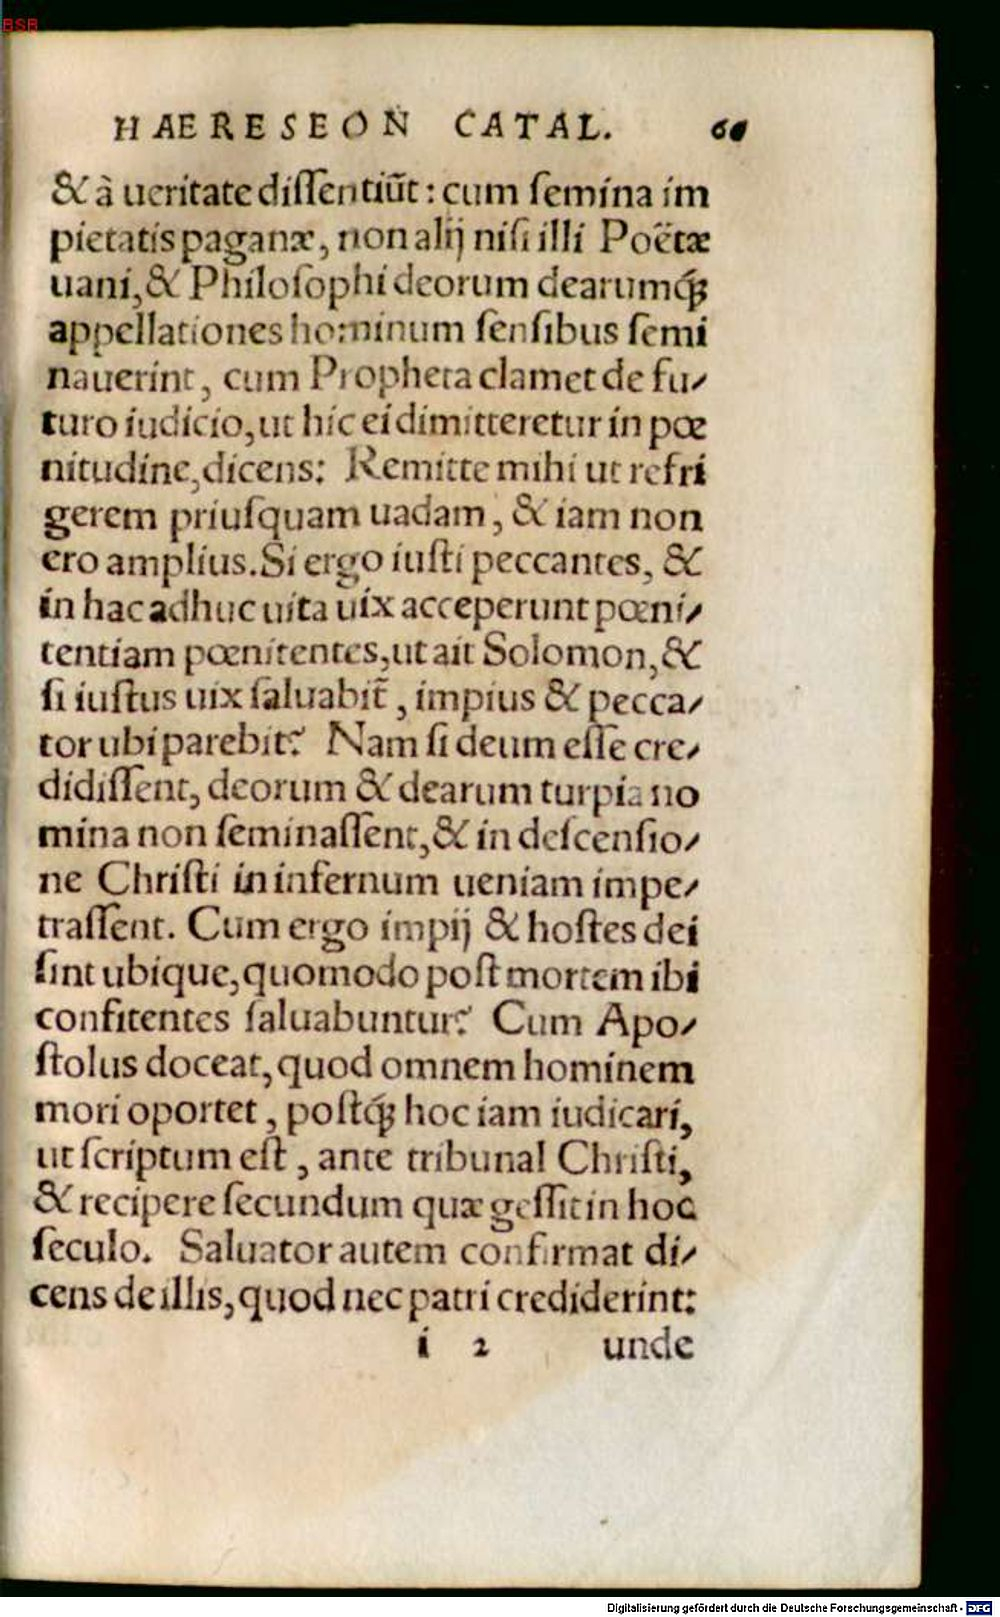 BSB
HAERESEON CATAL. 60
& à ueritate dissentiūt : cum semina im
pietatis paganæ, non alij nisi illi Poëtæ
uani, & Philosophi deorum dearumq́ꝫ
appellationes hominum sensibus semi
nauerint, cum Propheta clamet de fu⸗
turo iudicio, ut hic ei dimitteretur in pœ
nitudine, dicens: Remitte mihi ut refri
gerem priusquam uadam, & iam non
ero amplius. Si ergo iusti peccantes, &
in hac adhuc uita uix acceperunt pœni⸗
tentiam pœnitentes, ut ait Solomon, &
si iustus uix saluabit̄, impius & pecca⸗
tor ubi parebit? Nam si deum esse cre⸗
didissent, deorum & dearum turpia no
mina non seminassent, & in descensio⸗
ne Christi in infernum ueniam impe⸗
trassent. Cum ergo impij & hostes dei
sint ubique, quomodo post mortem ibi
confitentes saluabuntur? Cum Apo⸗
stolus doceat, quod omnem hominem
mori oportet, postq́ꝫ hoc iam iudicari,
ut scriptum est, ante tribunal Christi,
& recipere secundum quæ gessit in hoc
seculo. Saluator autem confirmat di⸗
cens de illis, quod nec patri crediderint:
i 2 unde
Digitalisierung gefördert durch die Deutsche Forschungsgemeinschaft - DFG